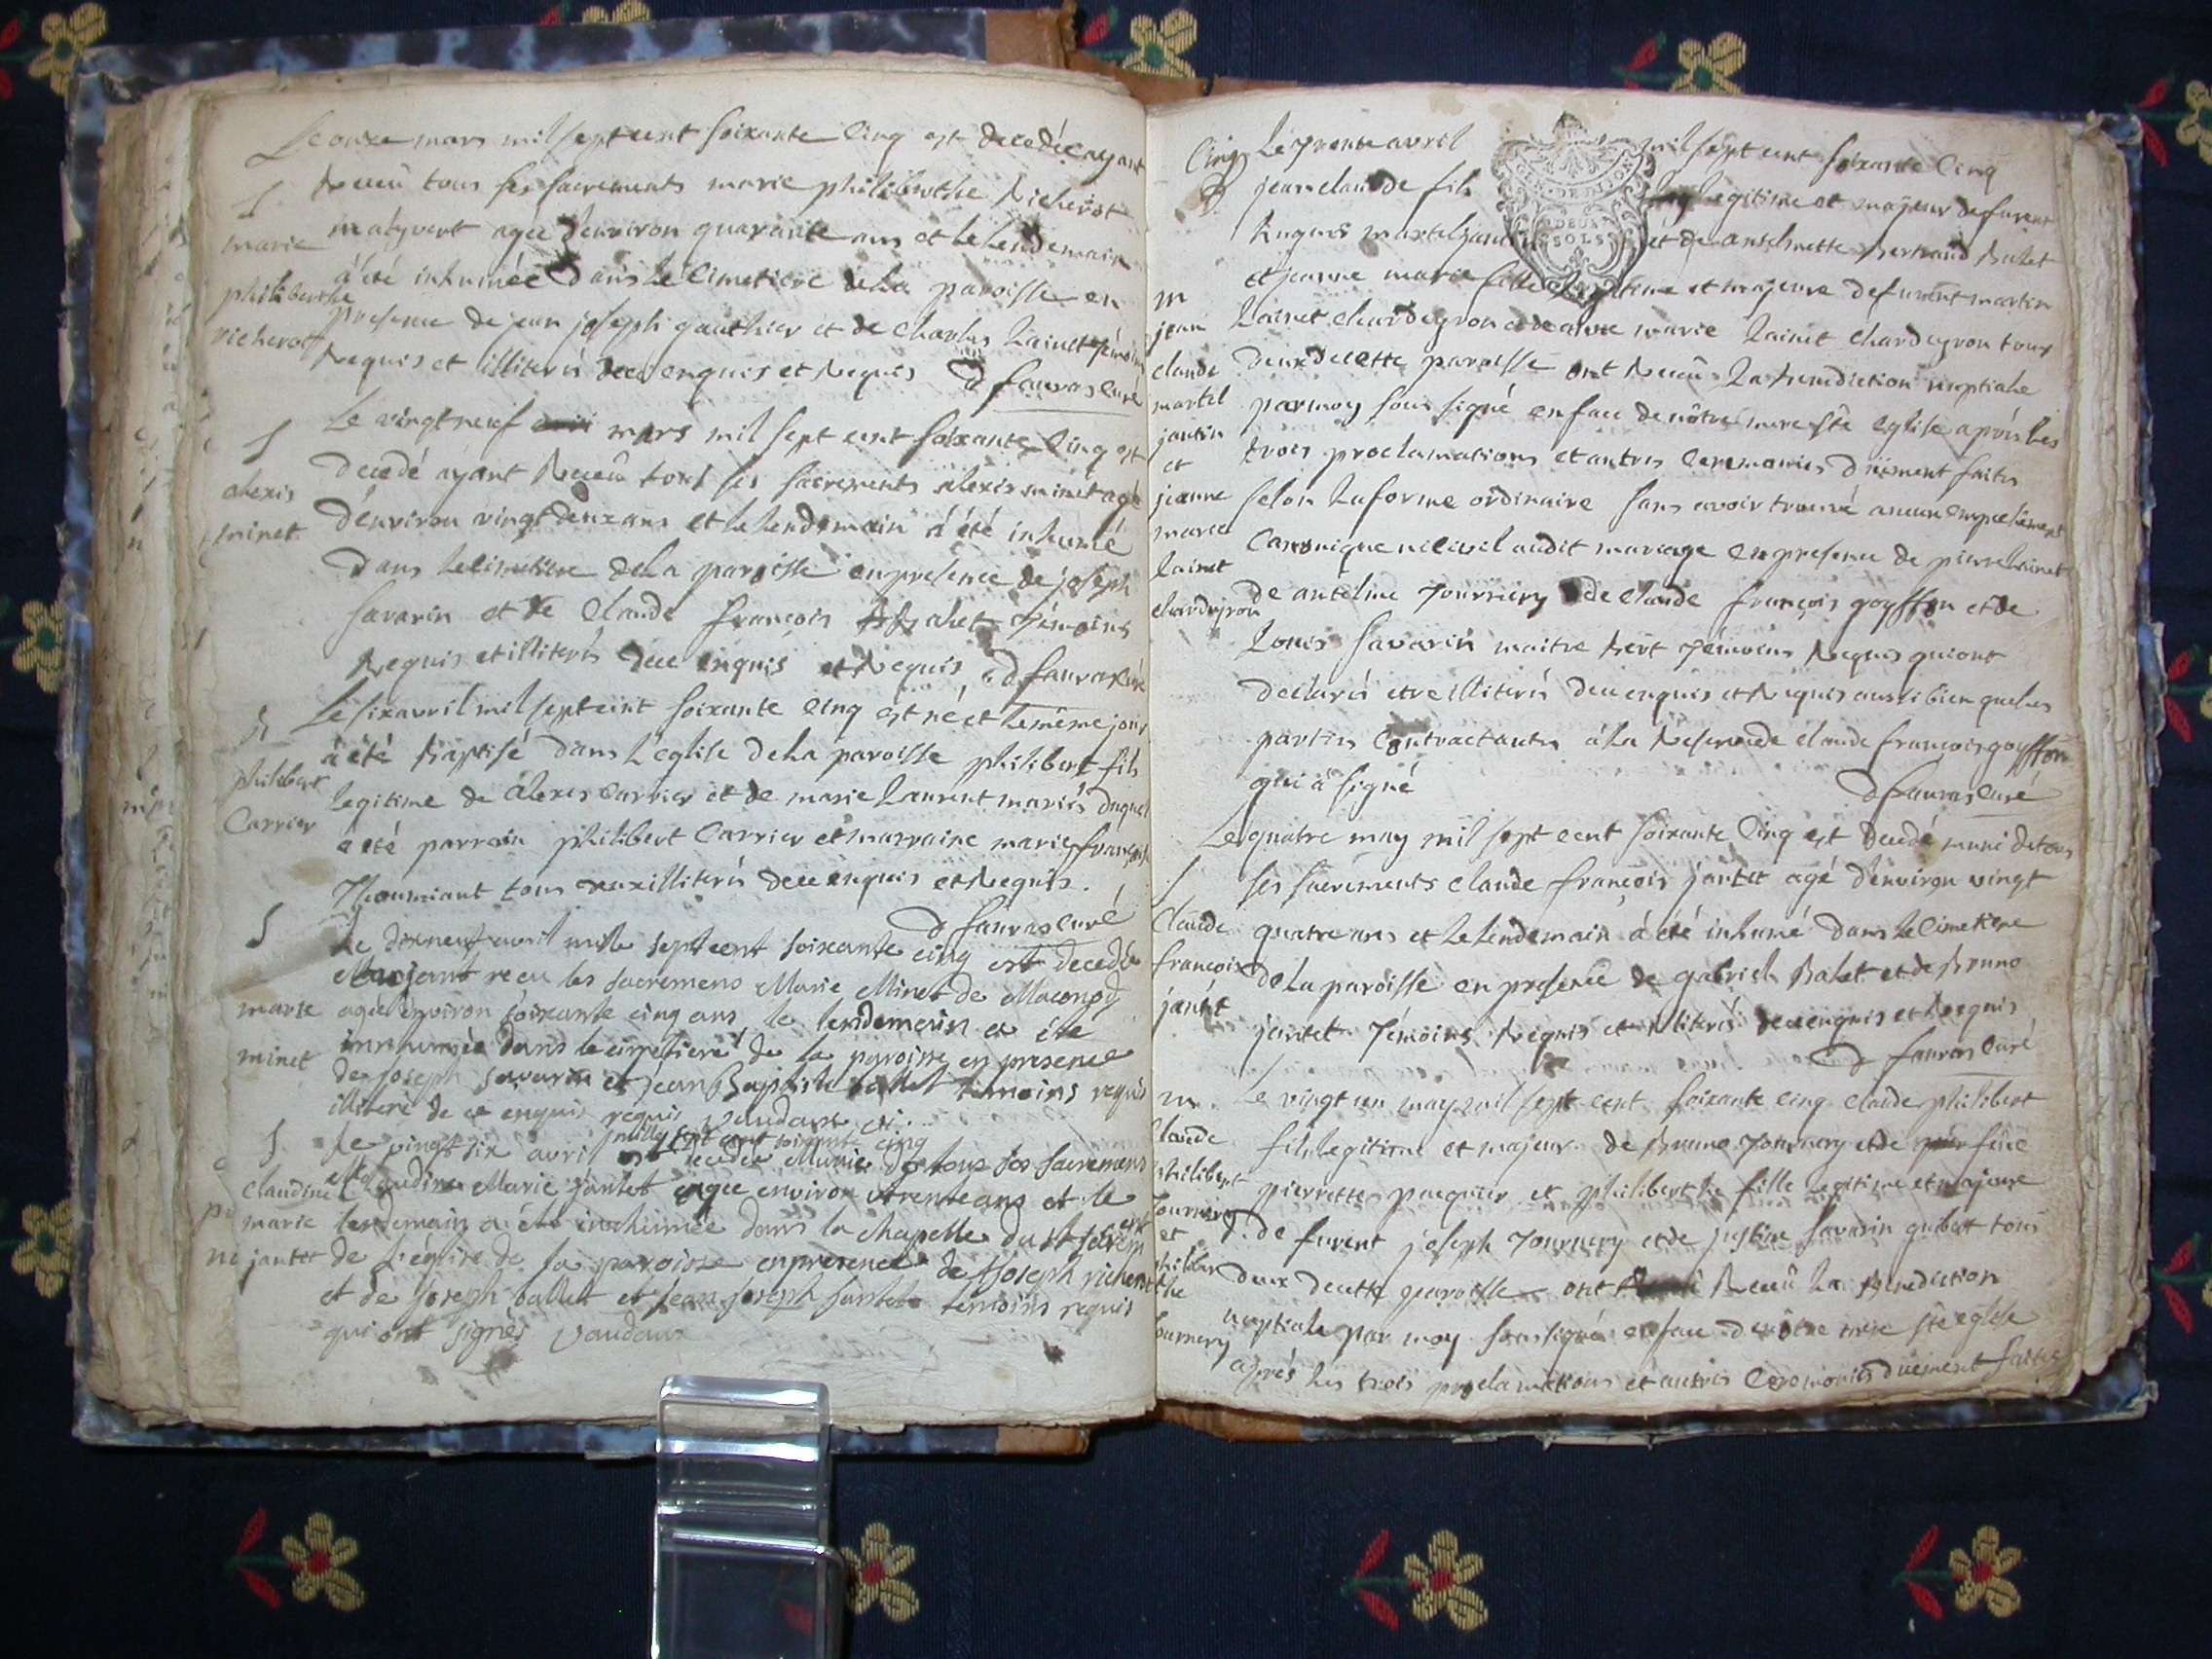 Le onze mars mil sept cent soixante cinq est decedée ayant
S
receu tous ses sacrements marie philiberthe richerot
marie
malyvert agée d'environ quarante ans et le lendemain
à été inhumée dans le cimetiere de la paroisse en
philiberthe
presence de jean joseph gauthier et de charles Lainet témoins
richerot
requis et illiterés de ce enquis et requis D favras curé
Le vingt neuf mars mil sept cent soixante cinq est
S
decedé ayant receu tous ses sacrements alexis minet agé
alexis
minet
d'environ vingt deux ans et le lendemain à été inhumé
dans le cimetiere de la paroisse en presence de joseph
savarin et de claude françois témoins
requis et illiterés de ce enquis et requis D favras curé
Le six avril mil sept cent soixante cinq est né et le même jour
à été baptisé dans l'eglise de la paroisse philibert fils
philibert
Carrier
legitime de alexis carrier et de marie Laurent mariés duquel
à été parrain philibert Carrier et marraine marie françoise
Thoumiant tous deux illiterés de ce enquis et requis.
D favras curé
S
Le dix neuf avril mille sept cent soixante cinq est decedée
ayant reçu les sacremens Marie Minet de
marie
minet
agée environ soixante cinq ans le lendemain a été
innhumée dans le cimetiere de la paroisse en presence
de joseph savarin et jean Baptiste ballet temoins requis
illiteré de ce enquis requis Vaudaux
mille sept cent soixante cinq
S
Le vingt six avril est decedée Munie de tous ses sacremens
claudine
marie
jantet
Claudine Marie jantet agée environ trente ans et le
lendemain a été innhumée dans la chapelle du st sacrem ent
de l'église de la paroisse en presence de joseph richerot
et de joseph ballet et jean joseph jantet temoins requis
qui ont signés Vaudaux
cinq
Le trente avril mil sept cent soixante cinq
jean claude fils legitime et majeur de furent
GEN. DE DIJON
DEUX
SOLS
hugues martel jantin et de anselmette Bertrand Balet
et jeanne marie fille legitime et majeure de furent martin
m
jean
claude
martel
jantin
et
jeanne
marie
lainet
chardeyron
Lainet chardeyron et de anne marie Lainet chardeyron tous
deux de cette paroisse ont receu la benediction nuptiale
par moy sous signé en face de nôtre mere ste eglise aprés les
trois proclamations et autres ceremonies düement faites
selon la forme ordinaire sans avoir trouvé aucun empechement
canonique ni civil audit mariage en presence de pierre lainet
de antelme Tournery de claude françois goyffon et de
Louis savarin maitre témoins requis qui ont
declarés etre illiterés de ce enquis et requis aussi bien que les
parties contractantes à la reserve de claude françois goyffon
qui à signé
D favras curé
Le quatre may mil sept cent soixante cinq est decedé muni de tous
ses sacrements claude françois jantet agé d'environ vingt
claude
françois
jantet
quatre ans et le lendemain à été inhumé dans le cimetiere
de la paroisse en presence de gabriel Balet et de Bruno
jantet témoins requis et illiterés de ce enquis et requis
D favras curé
m
Le vingt un may mil sept cent soixante cinq claude philibert
claude
philibert
Tournery
et
philiber
the
tournery
fils legitime et majeur de Bruno Tournery et de füe
pierrette pacquier et philiberthe fille legitime et majeure
de furent joseph Tournery et de justine savarin gubet tous
deux de cette paroisse ont receu la benediction
nuptiale par moy sous signé en face de nôtre mere ste eglise
aprés les trois proclamations et autres ceremonies duement faites